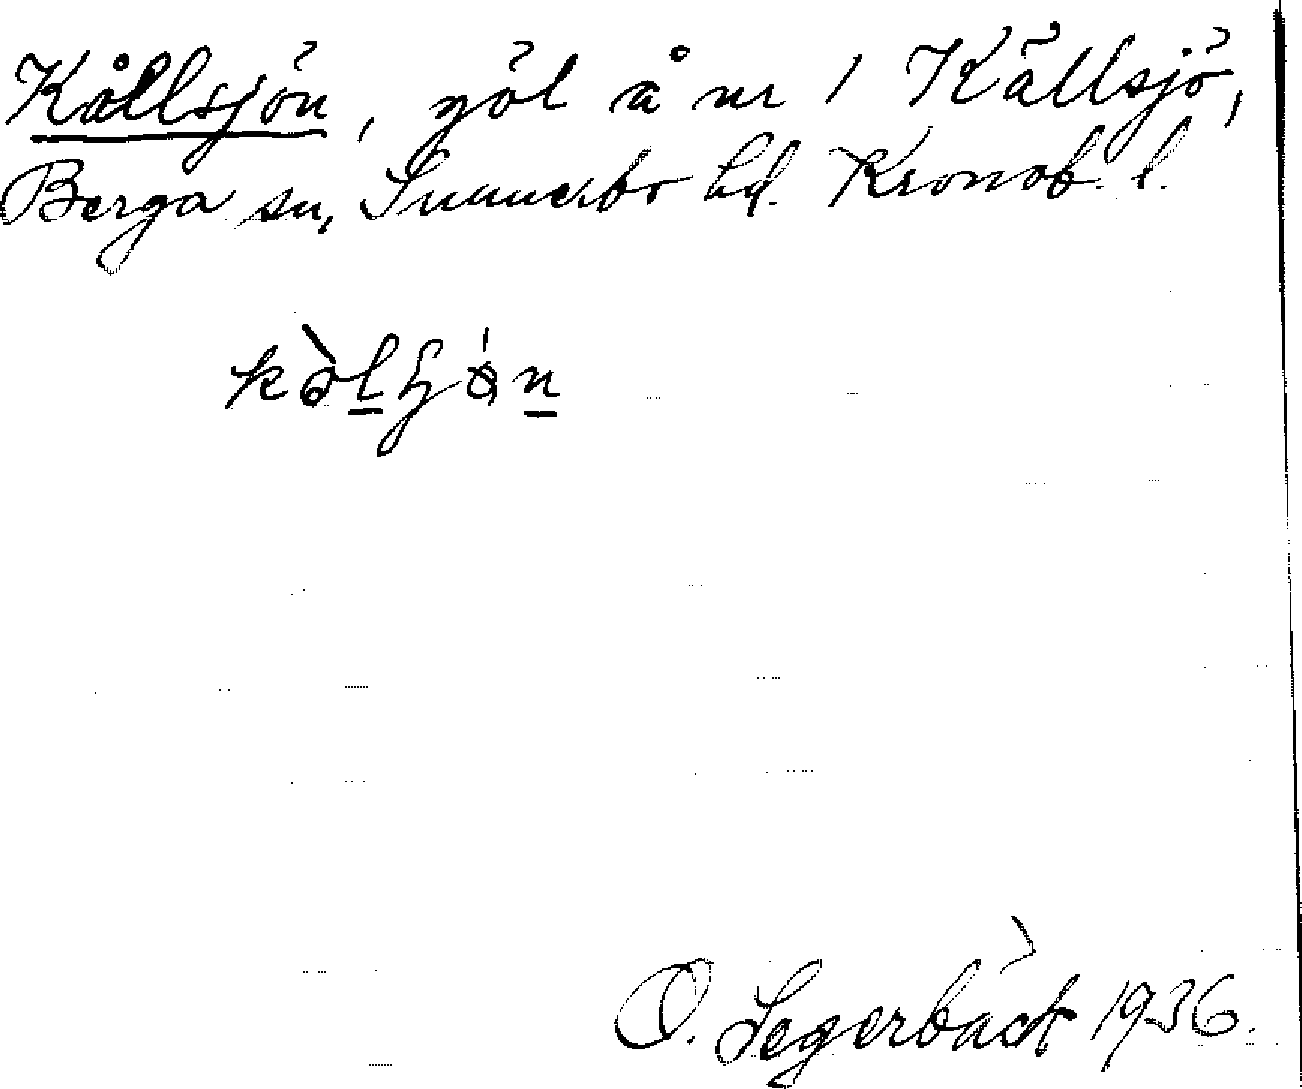 Kållsjön, göl å nr 1 Källsjö,
Berga sn, Sunnerbo hd. Kronob. l.
O. Segerbäck 1936.